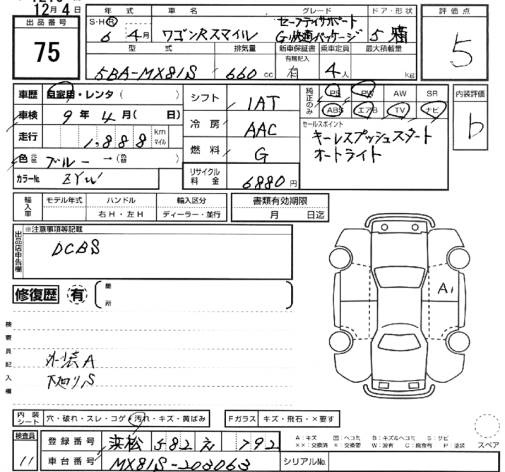 12月4日
出品番号
75
年式 車名 グレード ドア・形状
S・H・R
6年4月 ワゴンRスマイル セーフティサポート
G 快適パッケージ 5ドア
型式 排気量 新車保証書 乗車定員 最大積載量
有 記載簿
5BA-MX81S 660cc 有 4人 kg
評価点
5
車歴 自家用・レンタ( )
車検 9年4月( 日)
走行 1,888 km マイル
色 ブルー→( )
カラーNo. ZYW
シフト 1AT
冷房 AAC
燃料 G
リサイクル料金 6880円
純正のみ PS PW AW SR
ABS エアB TV ナビ
セールスポイント
キーレスプッシュスタート
オートライト
内装評価
b
輸入車 モデル年式 ハンドル 輸入区分
年 右H・左H ディーラー・並行
書類有効期限
月 日迄
出品店申告欄
※注意事項等記載
DCBS
修復歴 有 箇所
検査員記入欄
外装A
下廻りS
A1
内装シート 穴・破れ・スレ・コゲ・汚れ・キズ・黄ばみ
Fガラス キズ・飛石・×要す
検査員
11
登録番号 浜松 582 え 792
車台番号 MX81S-203063
シリアルNo.
スペア